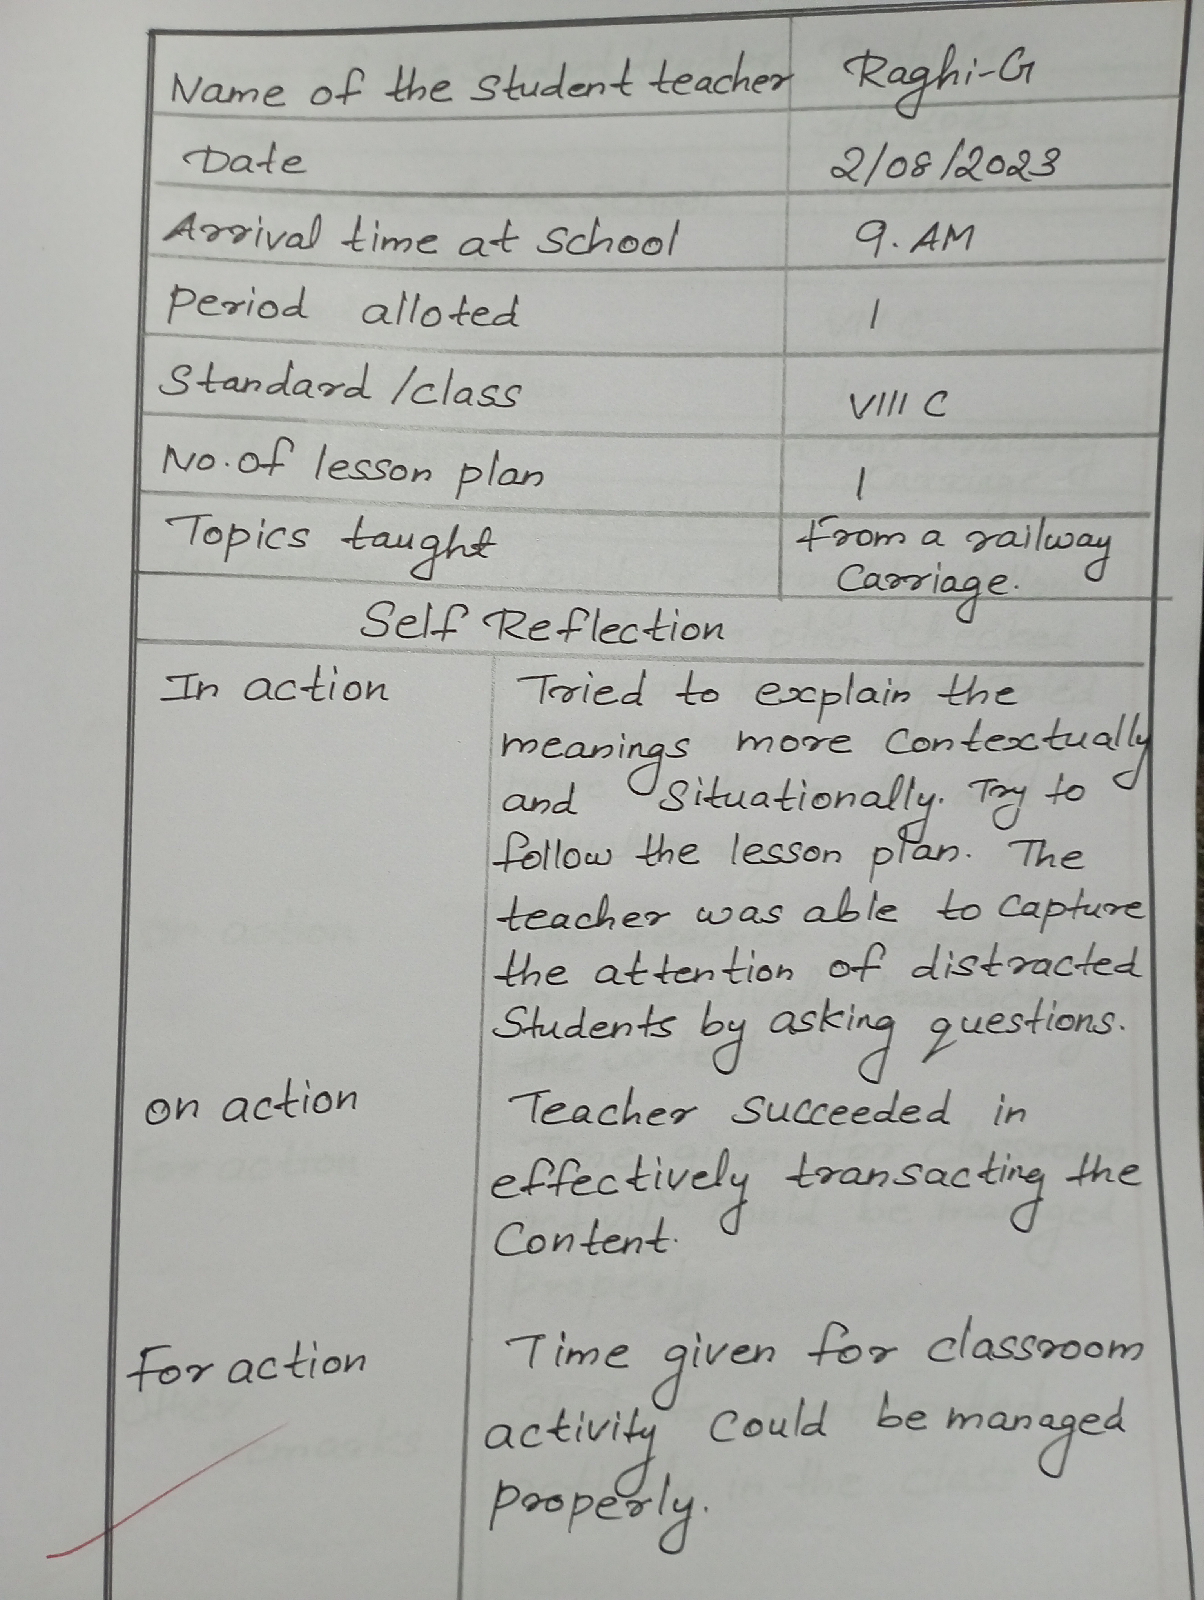 Name of the Student teacher Raghi-G
Date 2/08/2023
Arrival time at School 9. AM
Period alloted 1
Standard /class VIII C
No. of lesson plan 1
Topics taught From a railway
Carriage.
Self Reflection
In action Tried to explain the
meanings more Contextually
and Situationally. Try to
follow the lesson plan. The
teacher was able to Capture
the attention of distracted
Students by asking questions.
on action Teacher Succeeded in
effectively transacting the
Content.
For action Time given for classroom
activity Could be managed
Properly.